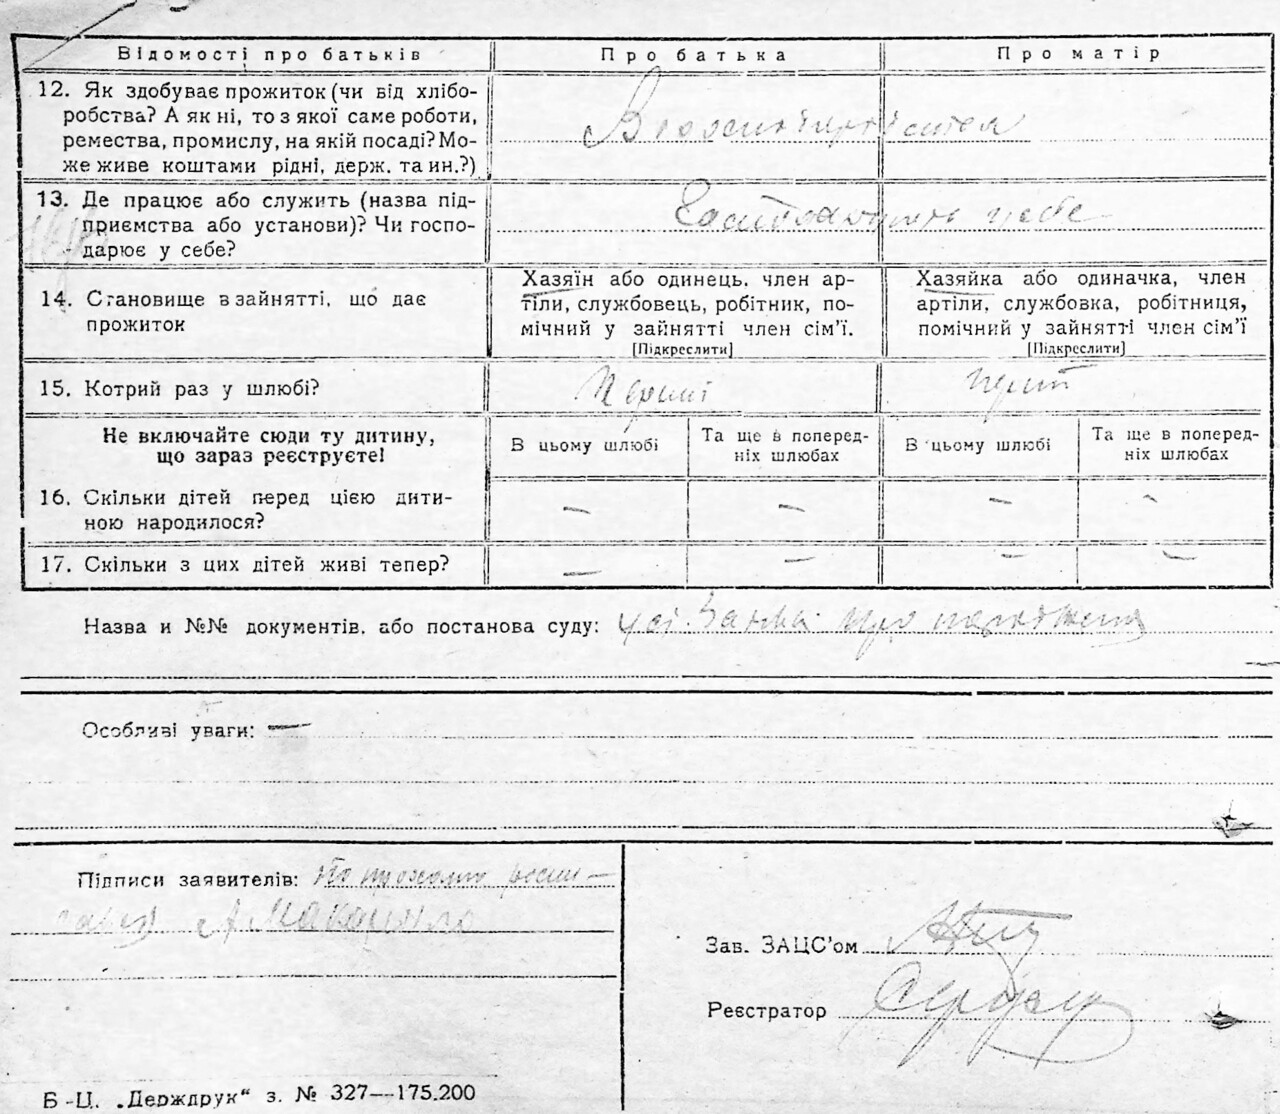 Відомості про батьків Про батька Про матір
12. Як здобуває прожиток (чи від хлібо-
робства? А як ні, то з якої саме роботи,
ремества, промислу, на якій посаді? Мо-
же живе коштами рідні, держ. та ин.?)
13. Де працює або служить (назва під-
приємства або установи)? Чи госпо-
дарює у себе?
себе
14. Становище в зайнятті, що дає
прожиток
Хазяїн або одинець, член ар-
тіли, службовець, робітник, по-
мічний у зайнятті член сім’ї.
[Підкреслити]
Хазяйка або одиначка, член
артіли, службовка, робітниця,
помічний у зайнятті член сім’ї
[Підкреслити]
15. Котрий раз у шлюбі?
Не включайте сюди ту дитину,
що зараз реєструєте!
В цьому шлюбі
Та ще в поперед-
ніх шлюбах
В цьому шлюбі
Та ще в поперед-
ніх шлюбах
16. Скільки дітей перед цією дити-
ною народилося?
— — — —
17. Скільки з цих дітей живі тепер?
— — — —
Назва и №№ документів, або постанова суду: про народження
Особливі уваги: —
Підписи заявителів:
Зав. ЗАЦС’ом
Реєстратор
Б -Ц. „Держдрук“ з. № 327—175.200